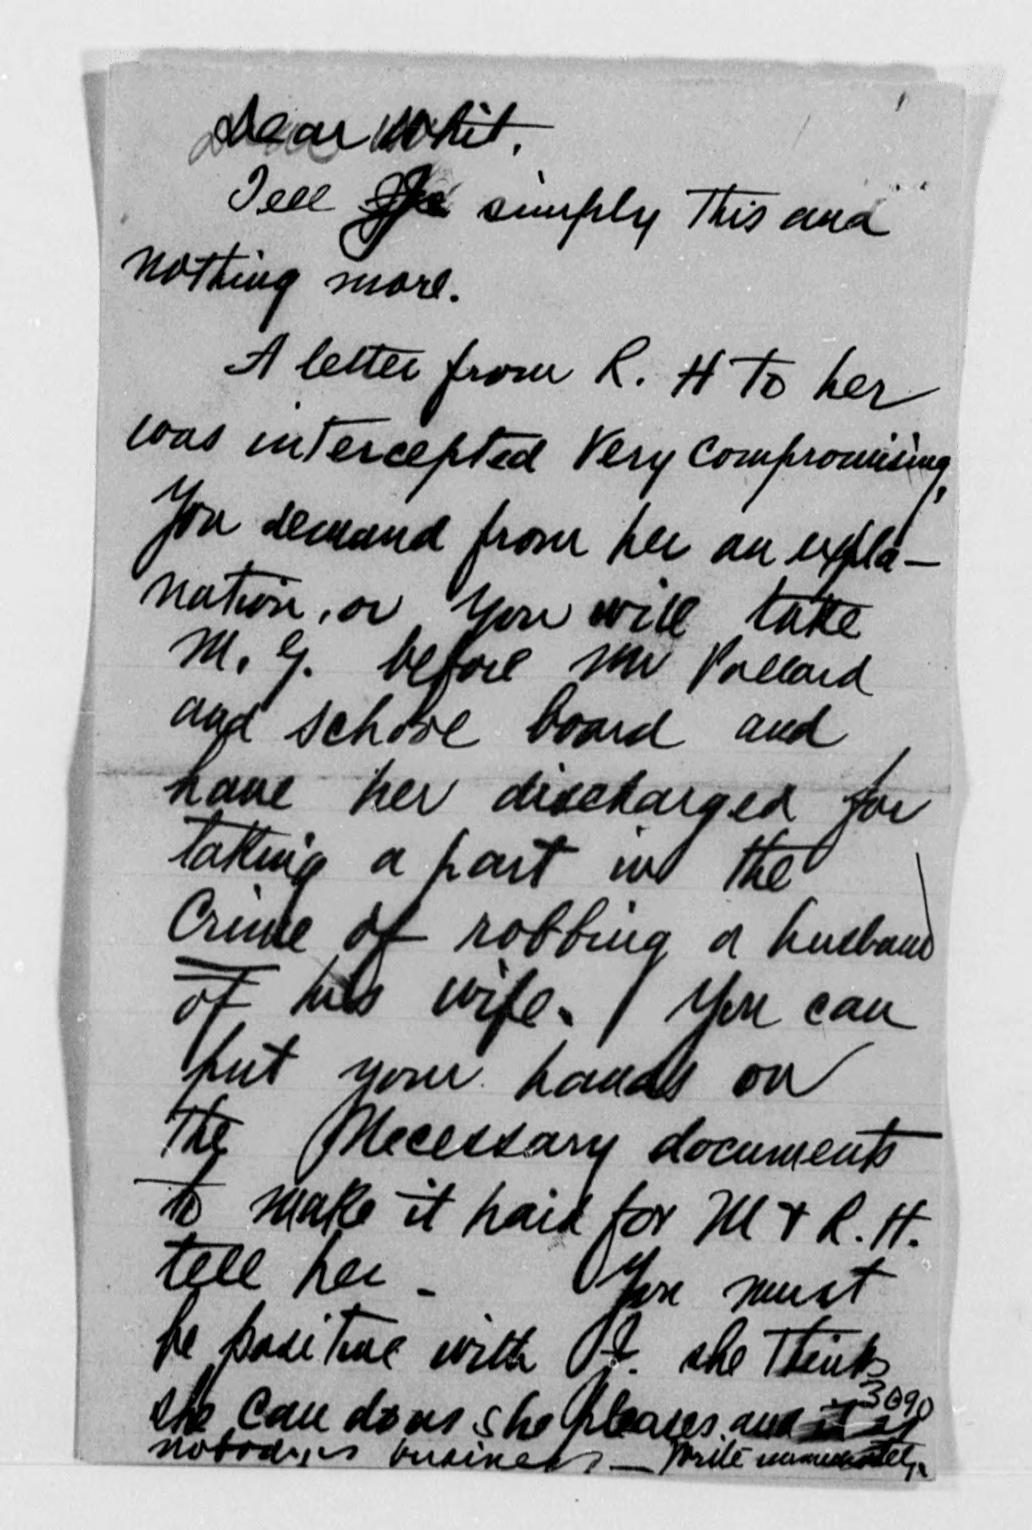 Dear Whit,
Tell simply This and
nothing more.
A letter from R. H To her
was intercepted Very compromising,
You demand from her an expla-
nation, or you will take
M. G. before Mr Pollard
and school board and
have her discharged for
taking a part in the
Crime of robbing a husband
of his wife. / You can
put your hands on
The Necessary documents
to make it hard for M & R. H.
tell her - You must
be positive with J. she Thinks
3090
she can do as she pleases and
nobodies business — Write immediately.